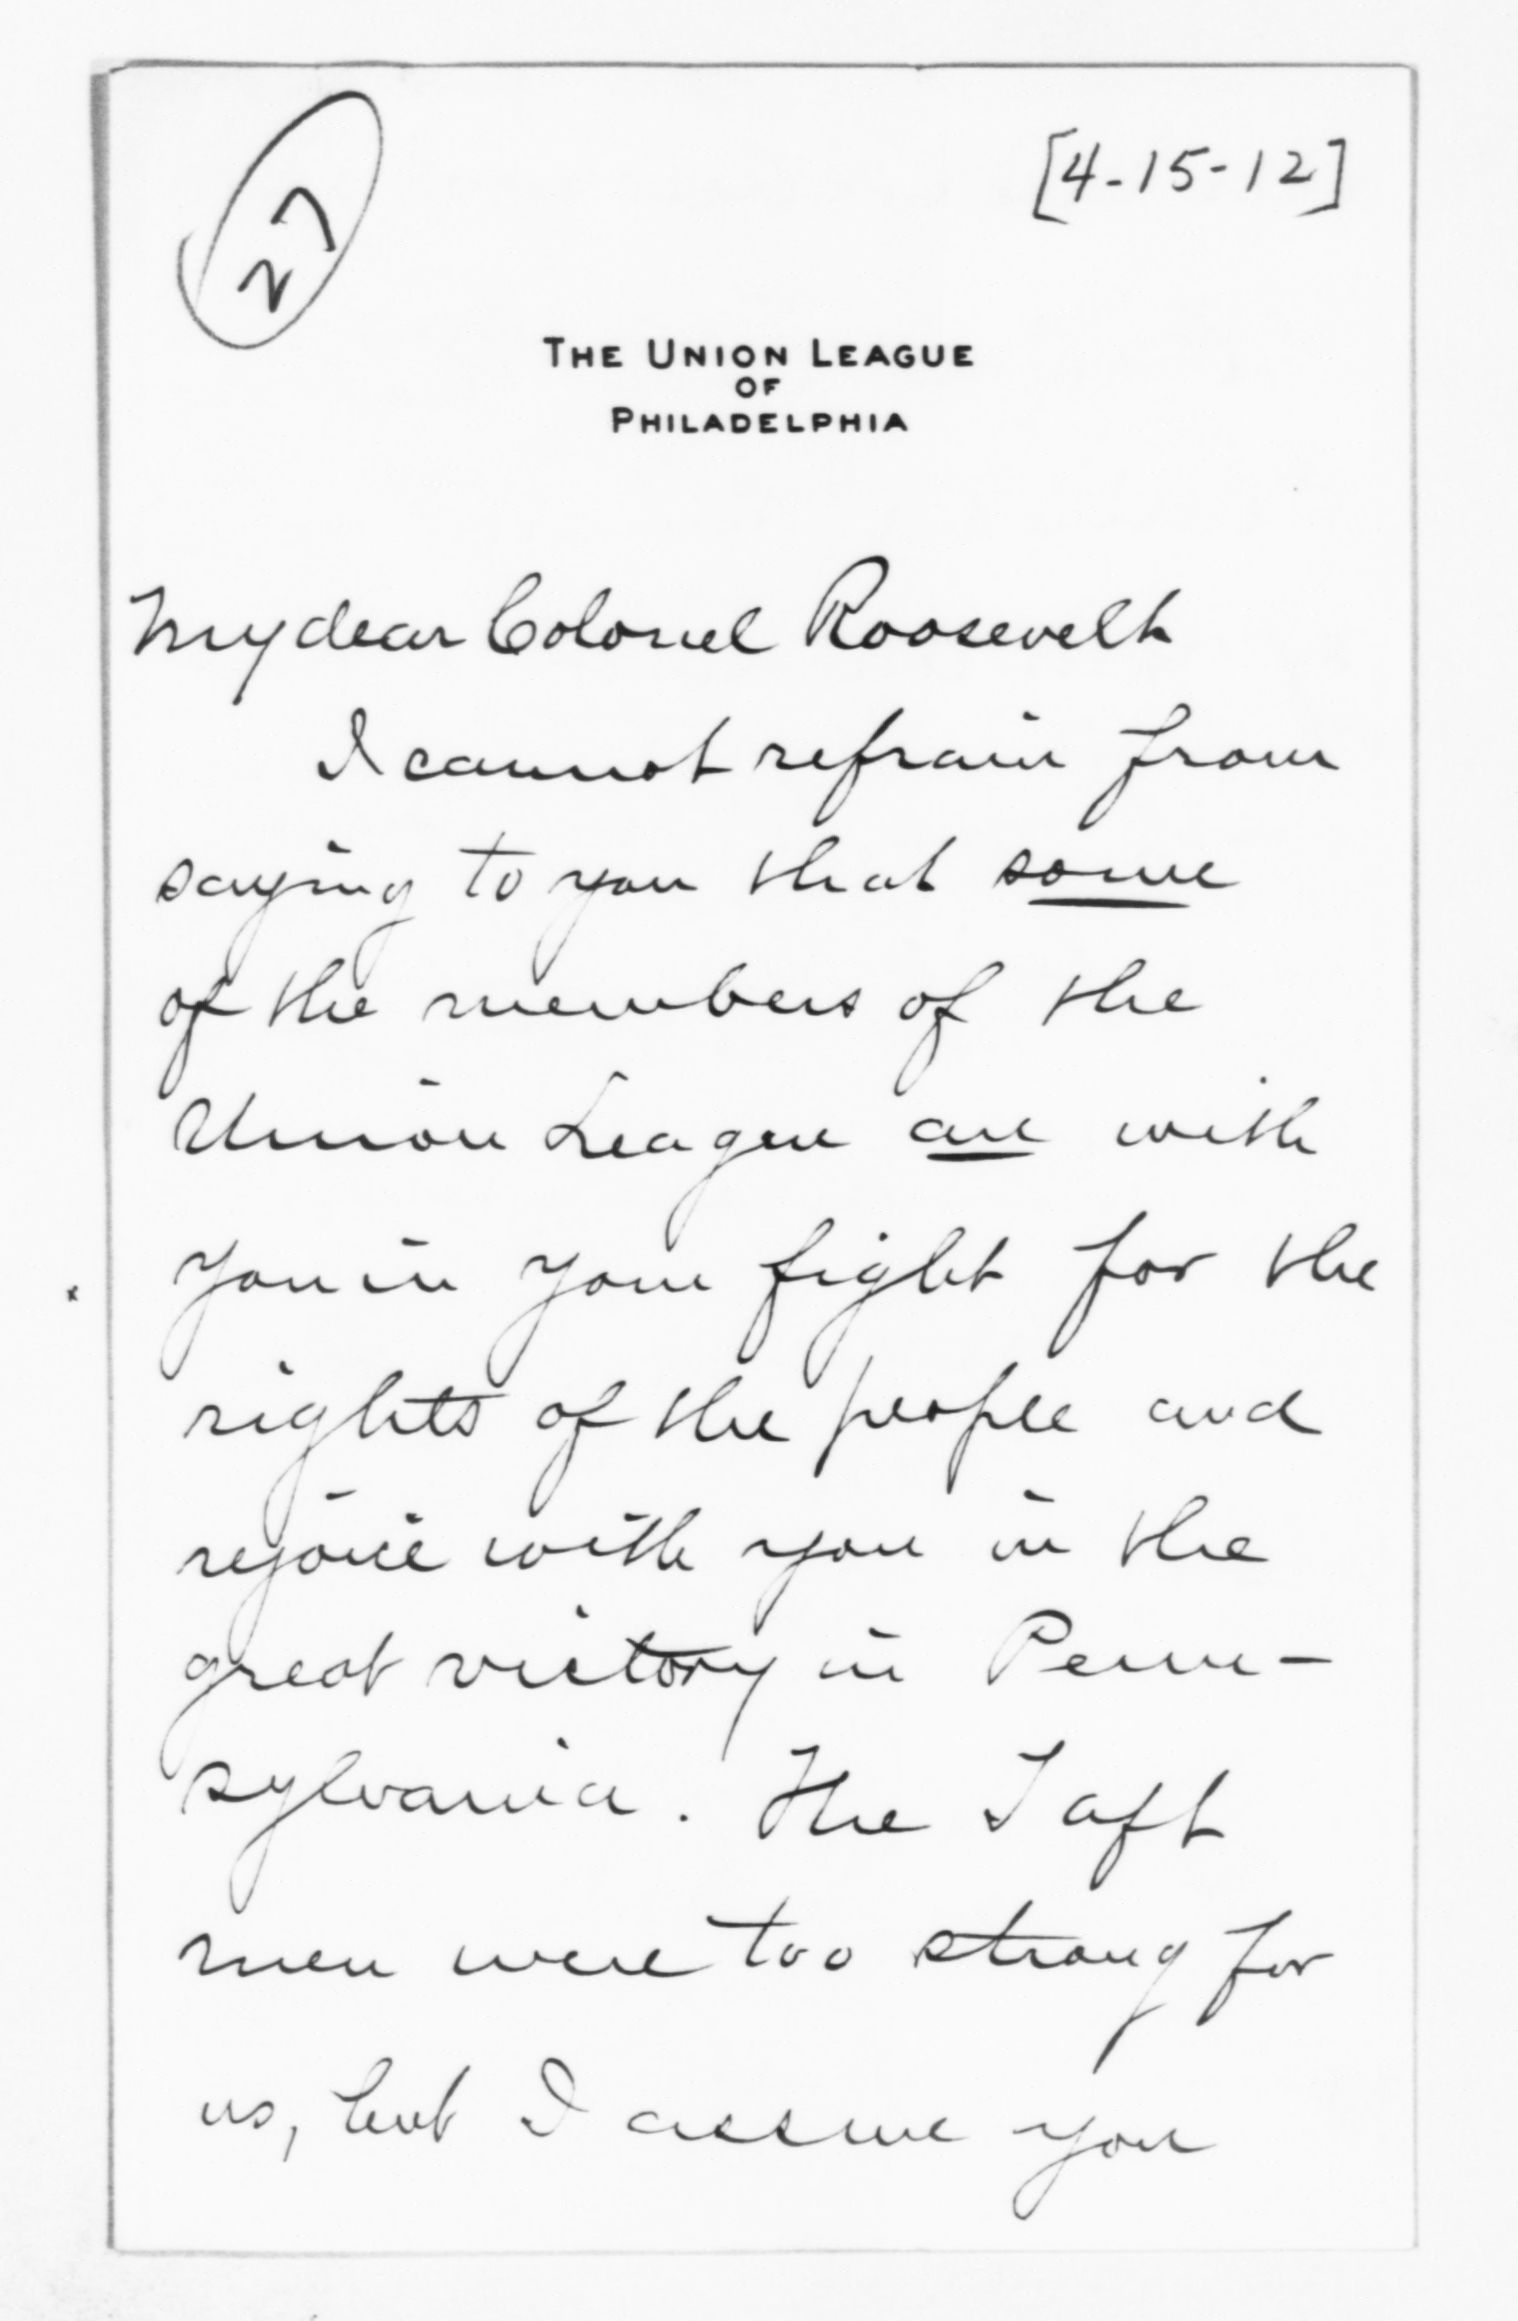 27
[4-15-12]
THE UNION LEAGUE
OF
PHILADELPHIA
My dear Colonel Roosevelt
I cannot refrain from
saying to you that some
of the members of the
Union League are with
you in your fight for the
rights of the people and
rejoice with you in the
great victory in Penn-
sylvania. The Taft
men were too strong for
us, but I assure you